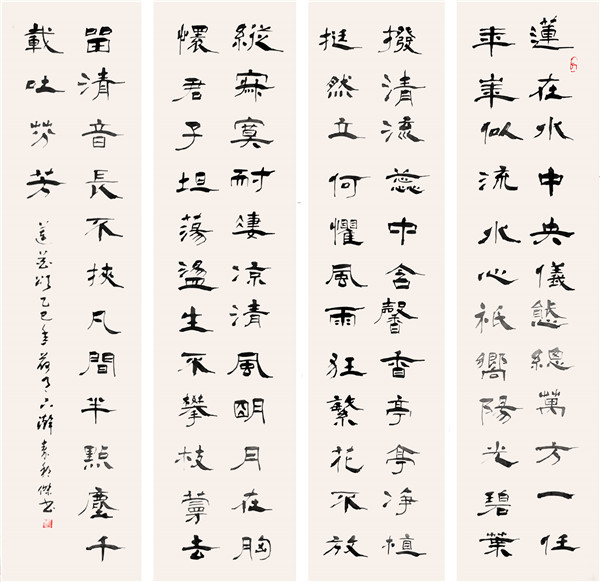 蓮在水中央儀態總萬方一任
年華似流水心祇嚮陽光碧葉
撥清流蕊中含馨香亭亭净植
挺然立何懼風雨狂繁花不放
縱寂寞耐凄凉清風明月在胸
懷君子坦蕩盪生不攀枝蔓去
留清音長不挾凡間半點塵千
載吐芬芳
蓮花頌乙巳年荷月